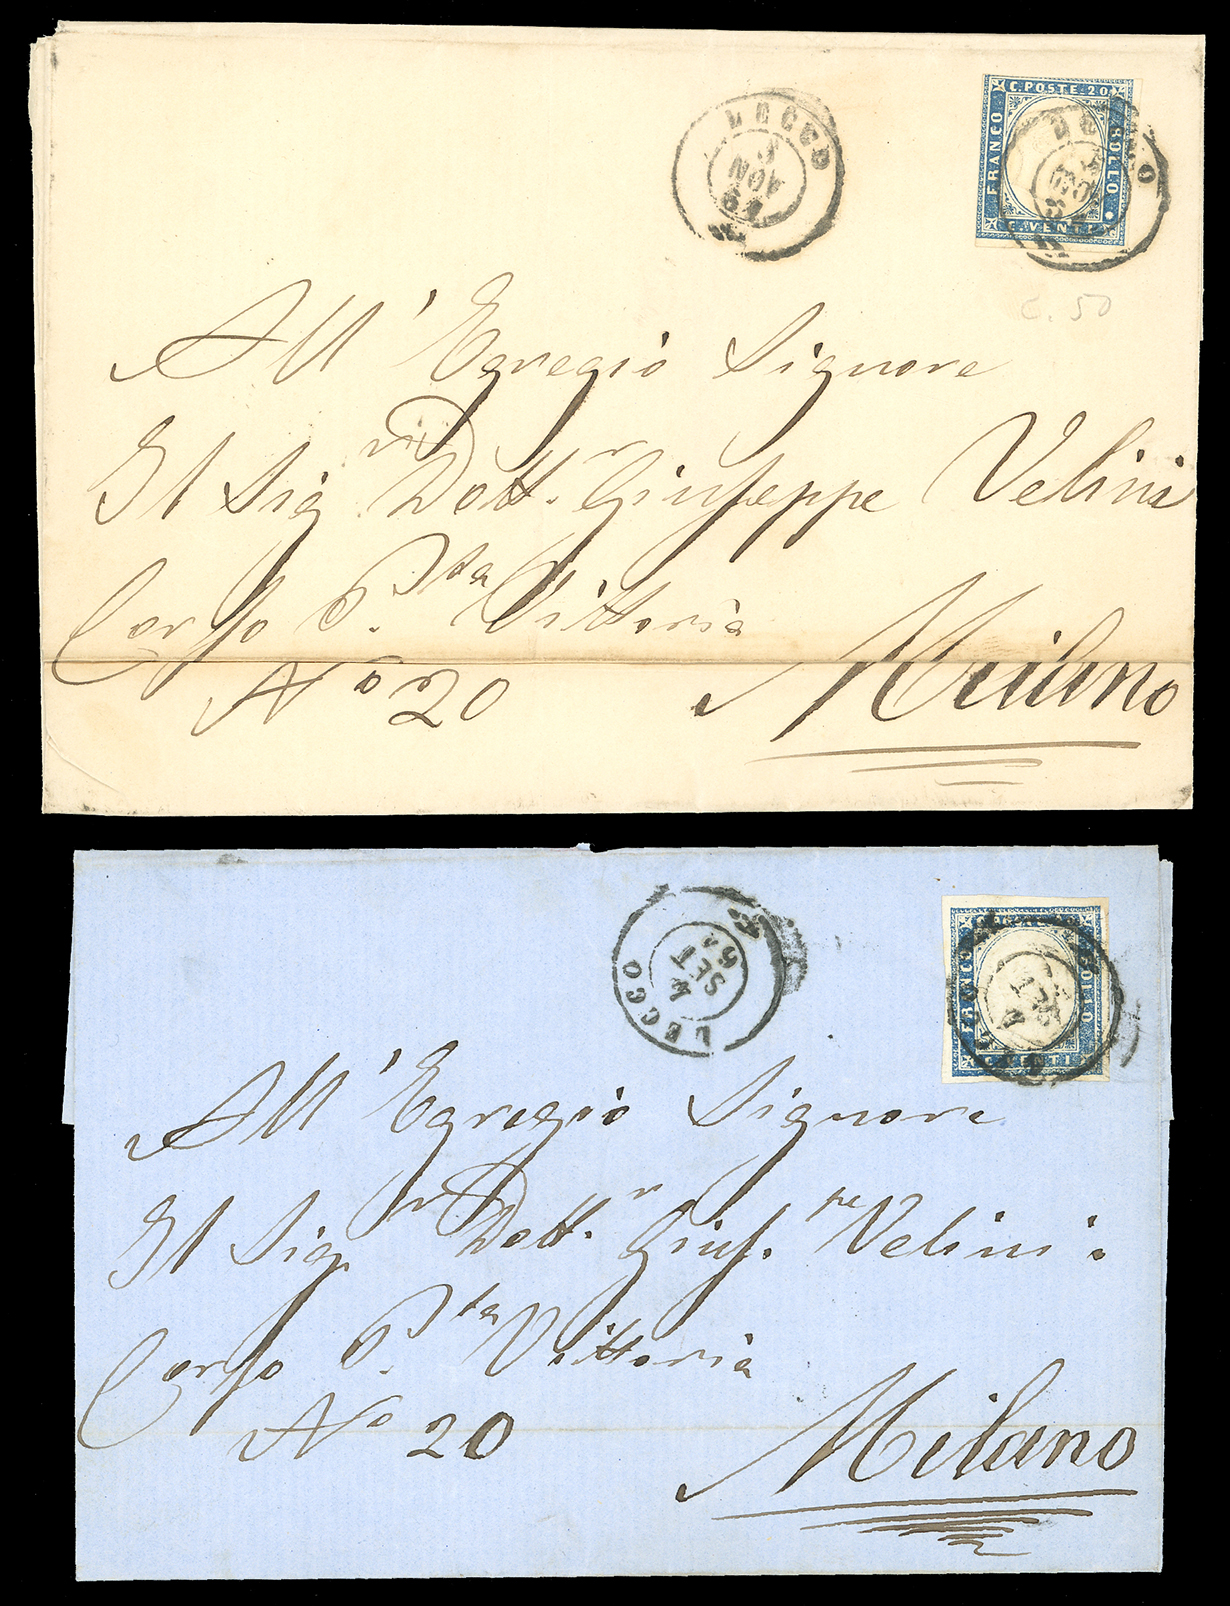 C. POSTE. 20
FRANCO
BOLLO
C. VENTI
LECCO
NOV
C. 50
All' Egregio Signore
Il Sig.r Dott.r Giuseppe Velini
Corso P.ta Vittoria
No 20 Milano
LECCO
4
SET
62
FRANCO
BOLLO
All' Egregio Signore
Il Sig.r Dott.r Gius.pe Velini.
Corso P.ta Vittoria
No 20
Milano